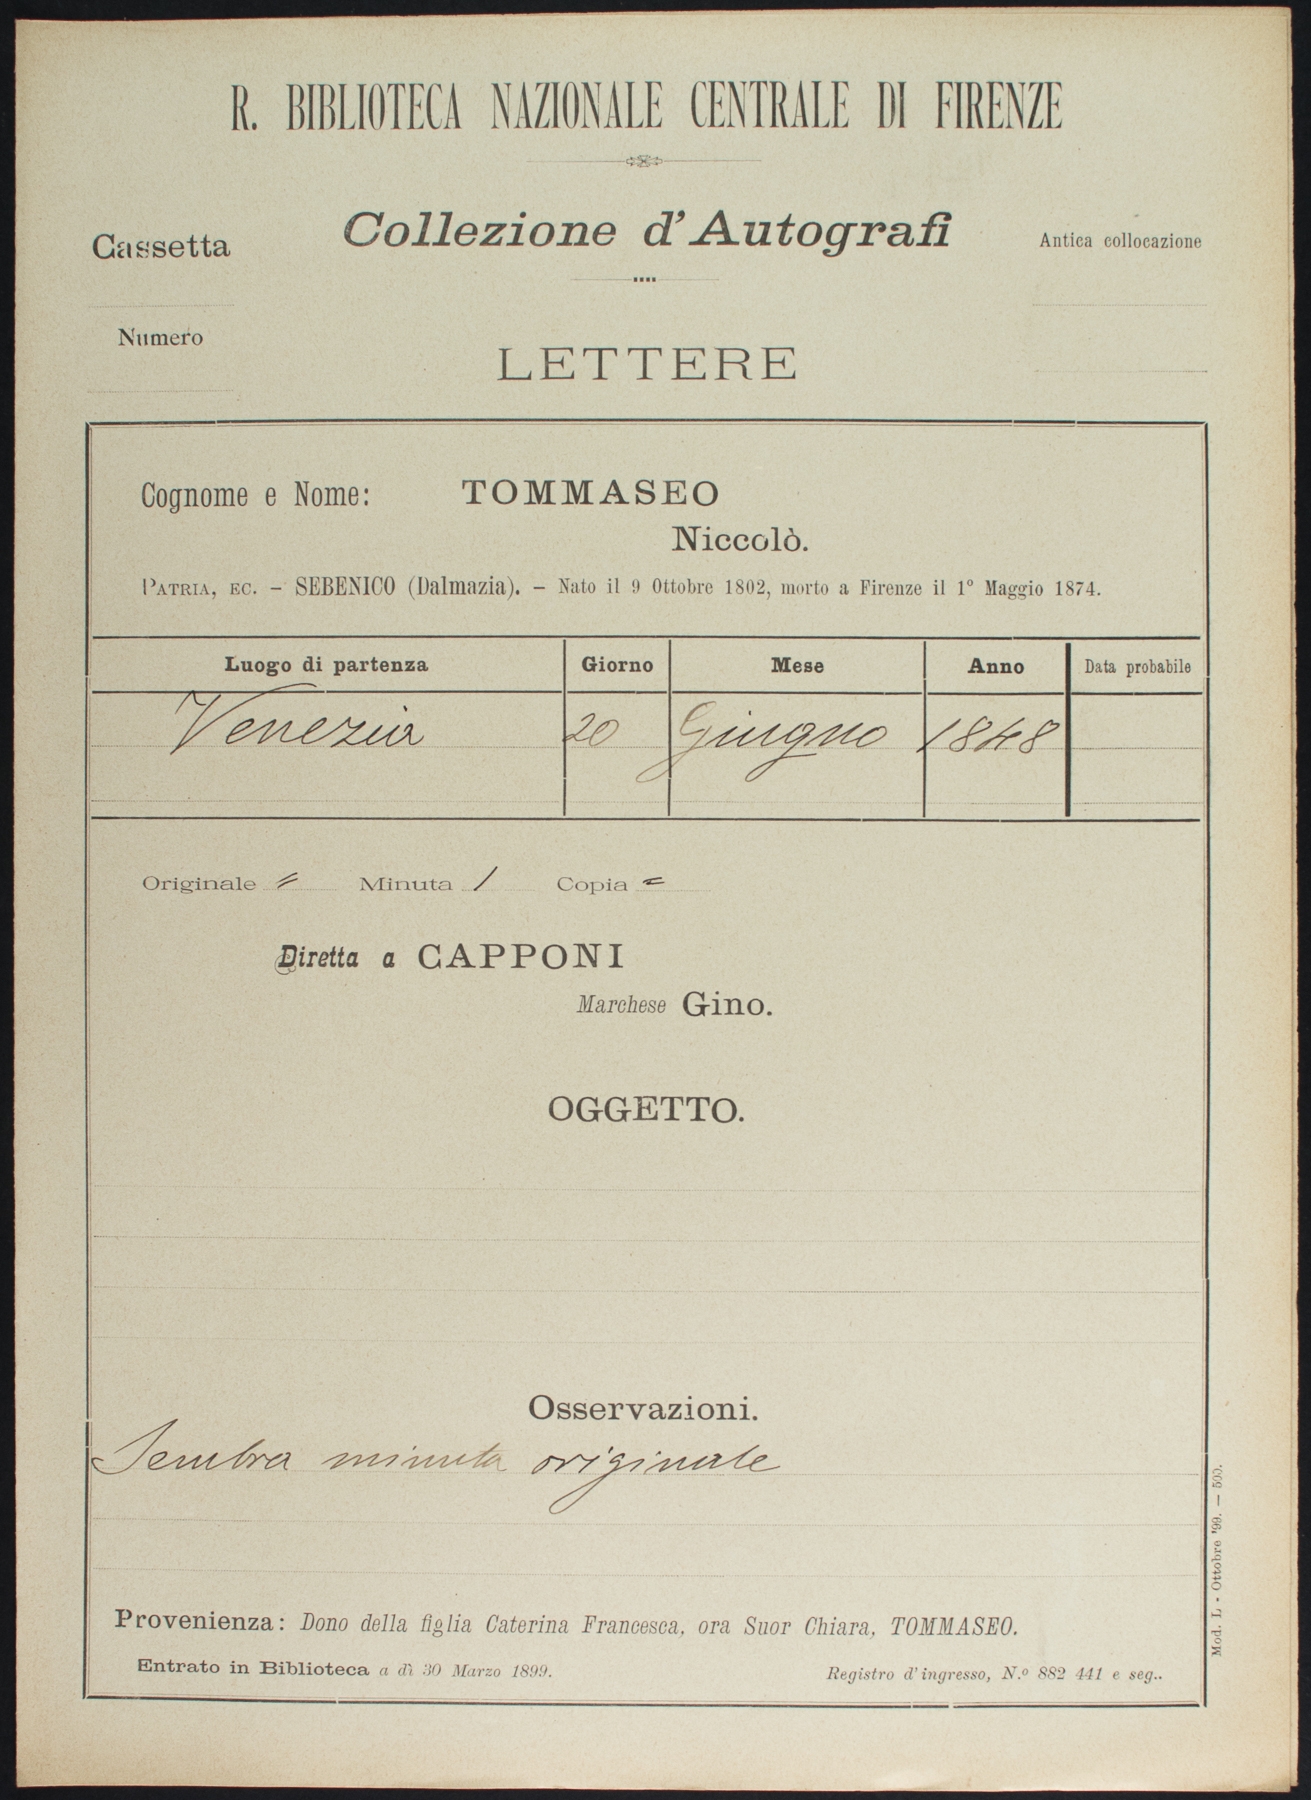 R. BIBLIOTECA NAZIONALE CENTRALE DI FIRENZE
Collezione d'Autografi
Cassetta
Antica collocazione
Numero
LETTERE
Cognome e Nome: TOMMASEO
Niccolò.
PATRIA, EC. – SEBENICO (Dalmazia). – Nato il 9 Ottobre 1802, morto a Firenze il 1° Maggio 1874.
Luogo di partenza Giorno Mese Anno Data probabile
Venezia 20 Giugno 1848
Originale = Minuta / Copia =
Diretta a CAPPONI
Marchese Gino.
OGGETTO.
Osservazioni.
Sembra minuta originale
Provenienza: Dono della figlia Caterina Francesca, ora Suor Chiara, TOMMASEO.
Entrato in Biblioteca a dì 30 Marzo 1899. Registro d'ingresso, N.º 882 441 e seg..
Mod. L - Ottobre '99. — 500.